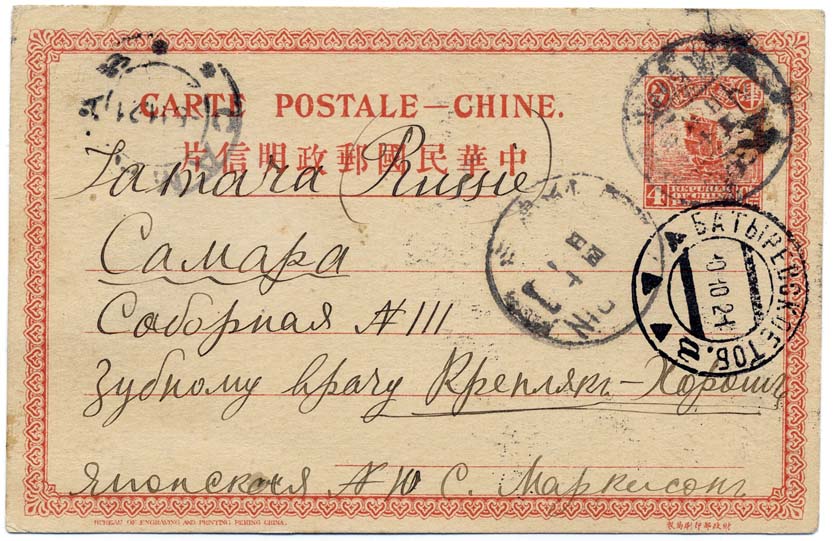 CARTE POSTALE—CHINE.
片信明政郵國民華中
Samara (Russie)
Самара
Соборная N 111
Зубному врачу Крепляк-Хорош
Японская N 10 С. Маркисонъ
4
REPUBLIC OF CHINA
БАТЫРЕВСК
10 10 24
BUREAU OF ENGRAVING AND PRINTING PEKING CHINA.
製局刷印部政財